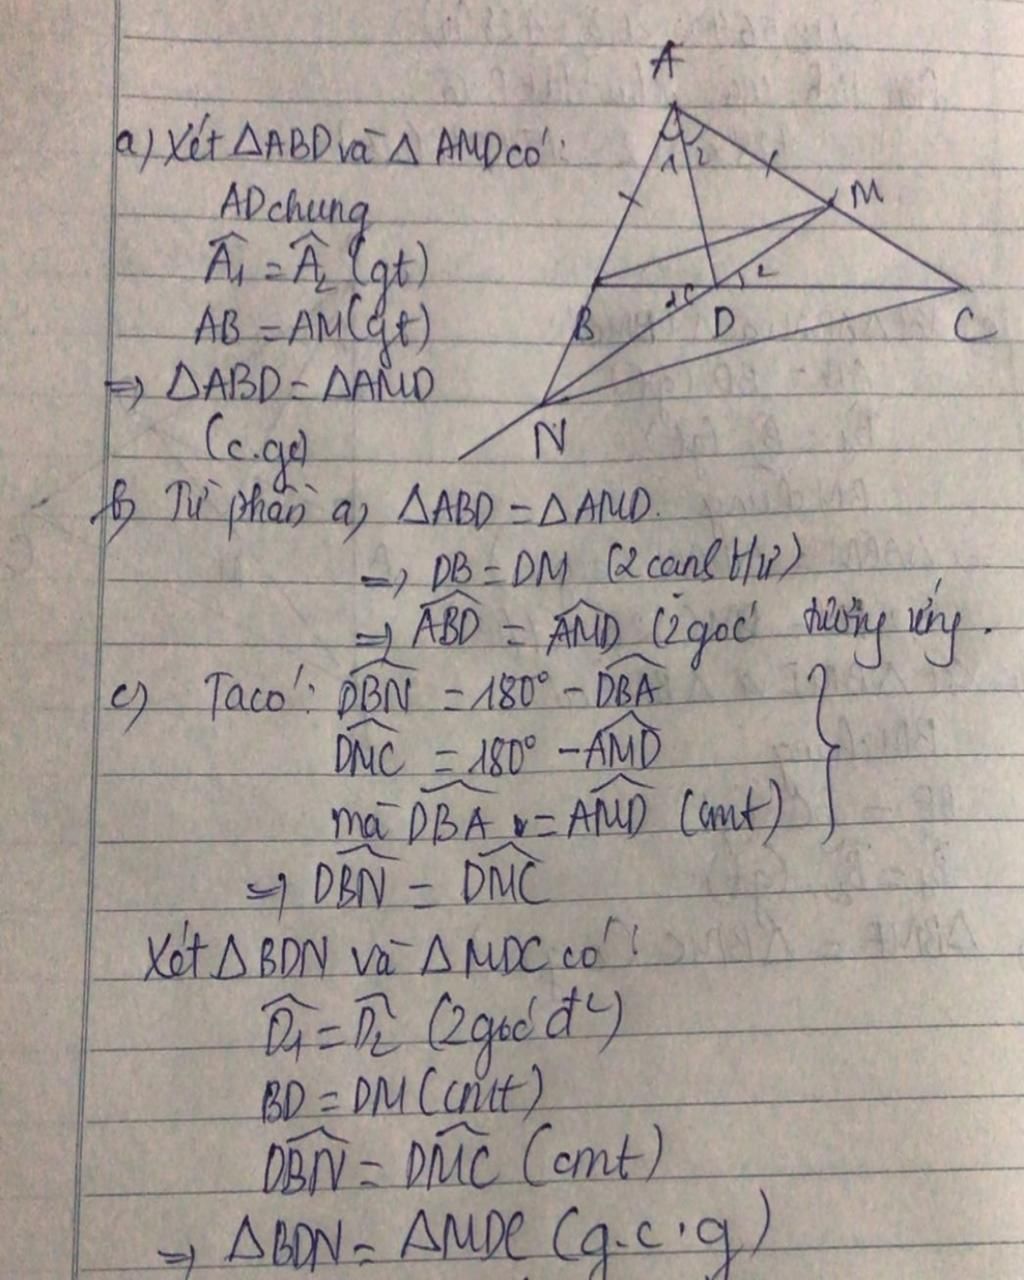 A
a) Xét ΔABD và Δ AMD có:
1 2
M
AD chung
Â₁ = Â₂ (gt)
2
AB = AM (gt)
B
D
C
=> ΔABD = ΔAMD
N
(c.gc)
b) Từ phần a) ΔABD = ΔAMD.
=> DB = DM (2 cạnh tư)
=> ABD = AMD (2 góc tương ứng.
c) Ta có: DBN = 180° - DBA
DMC = 180° - AMD
mà DBA = AMD (cmt)
=> DBN = DMC
Xét ΔBDN và ΔMDC có:
D₁ = D₂ (2 góc đ²)
BD = DM (cmt)
DBN = DMC (cmt)
=> ΔBDN = ΔMDC (g.c.g)